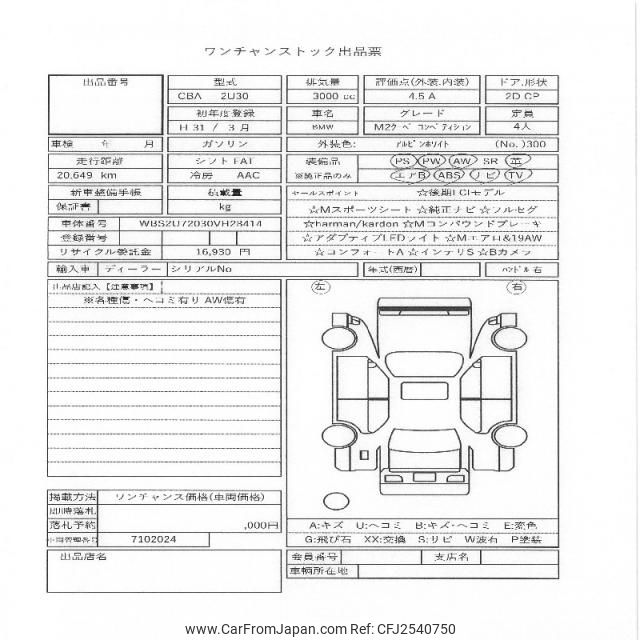 ワンチャンストック出品票
出品番号 型式 排気量 評価点(外装.内装) ドア.形状
CBA 2U30 3000 cc 4.5 A 2D CP
初年度登録 車名 グレード 定員
H 31 / 3 月 BMW M2ｸｰﾍﾟ ｺﾝﾍﾟﾃｨｼｮﾝ 4人
車検 年 月 ガソリン 外装色: ｱﾙﾋﾟﾝﾎﾜｲﾄ (No.)300
走行距離 シフト FAT 装備品 PS PW AW SR 革
20,649 km 冷房 AAC ※純正品のみ エアB ABS ナビ TV
新車整備手帳 積載量 セールスポイント ☆後期LCIモデル
保証書 kg ☆Mスポーツシート ☆純正ナビ ☆フルセグ
車体番号 WBS2U72030VH28414 ☆harman/kardon ☆Mコンパウンドブレーキ
登録番号 ☆アダプティブLEDライト ☆Mエアロ&19AW
リサイクル委託金 16,930 円 ☆コンフォートA ☆インテリS ☆Bカメラ
輸入車 ディーラー シリアルNo 年式(西暦) ﾊﾝﾄﾞﾙ 右
出品店記入【注意事項】 左 右
※各種傷・ヘコミ有り AW傷有
掲載方法 ワンチャンス価格(車両価格)
即時落札
落札予約 ,000円
A:キズ U:ヘコミ B:キズ・ヘコミ E:変色
7102024
G:飛び石 XX:交換 S:サビ W波有 P塗装
出品店名 会員番号 支店名
車輌所在地
www.CarFromJapan.com Ref: CFJ2540750